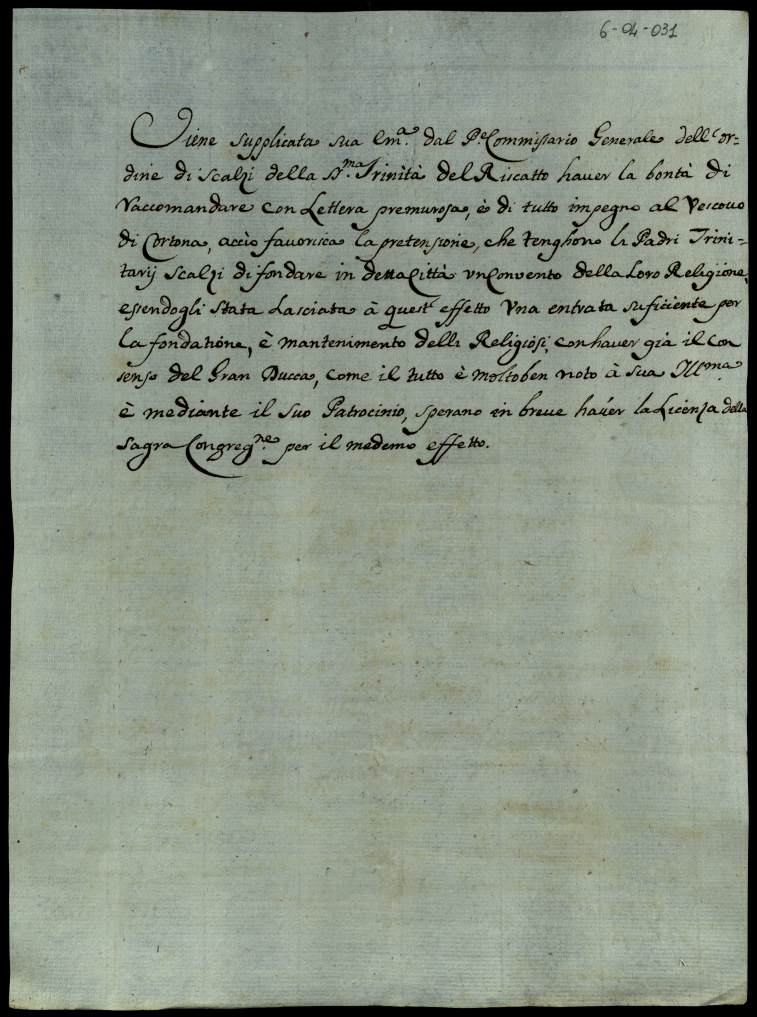 6-04-031
Viene supplicata sua Em.ª dal P.e Commissario Generale dell'or-
dine di Scalzi della SS.ma Trinità del Riscatto haver la bontà di
raccomandare con Lettera premurosa, è di tutto impegno al Vescovo
di Cortona, acciò favorisca la pretensione, che tenghono li Padri Trini-
tarij Scalzi di fondare in detta Città un Convento della Loro Religione,
essendogli stata Lasciata à quest' effetto Una entrata suficiente per
La fondatione, è mantenimento delli Religiosi, con haver già il con
senso del Gran Ducca, come il tutto è molto ben noto à sua Ill.ma
è mediante il suo Patrocinio, sperano in breve haver la Licenza della
Sagra Congreg.ne per il medemo effetto.